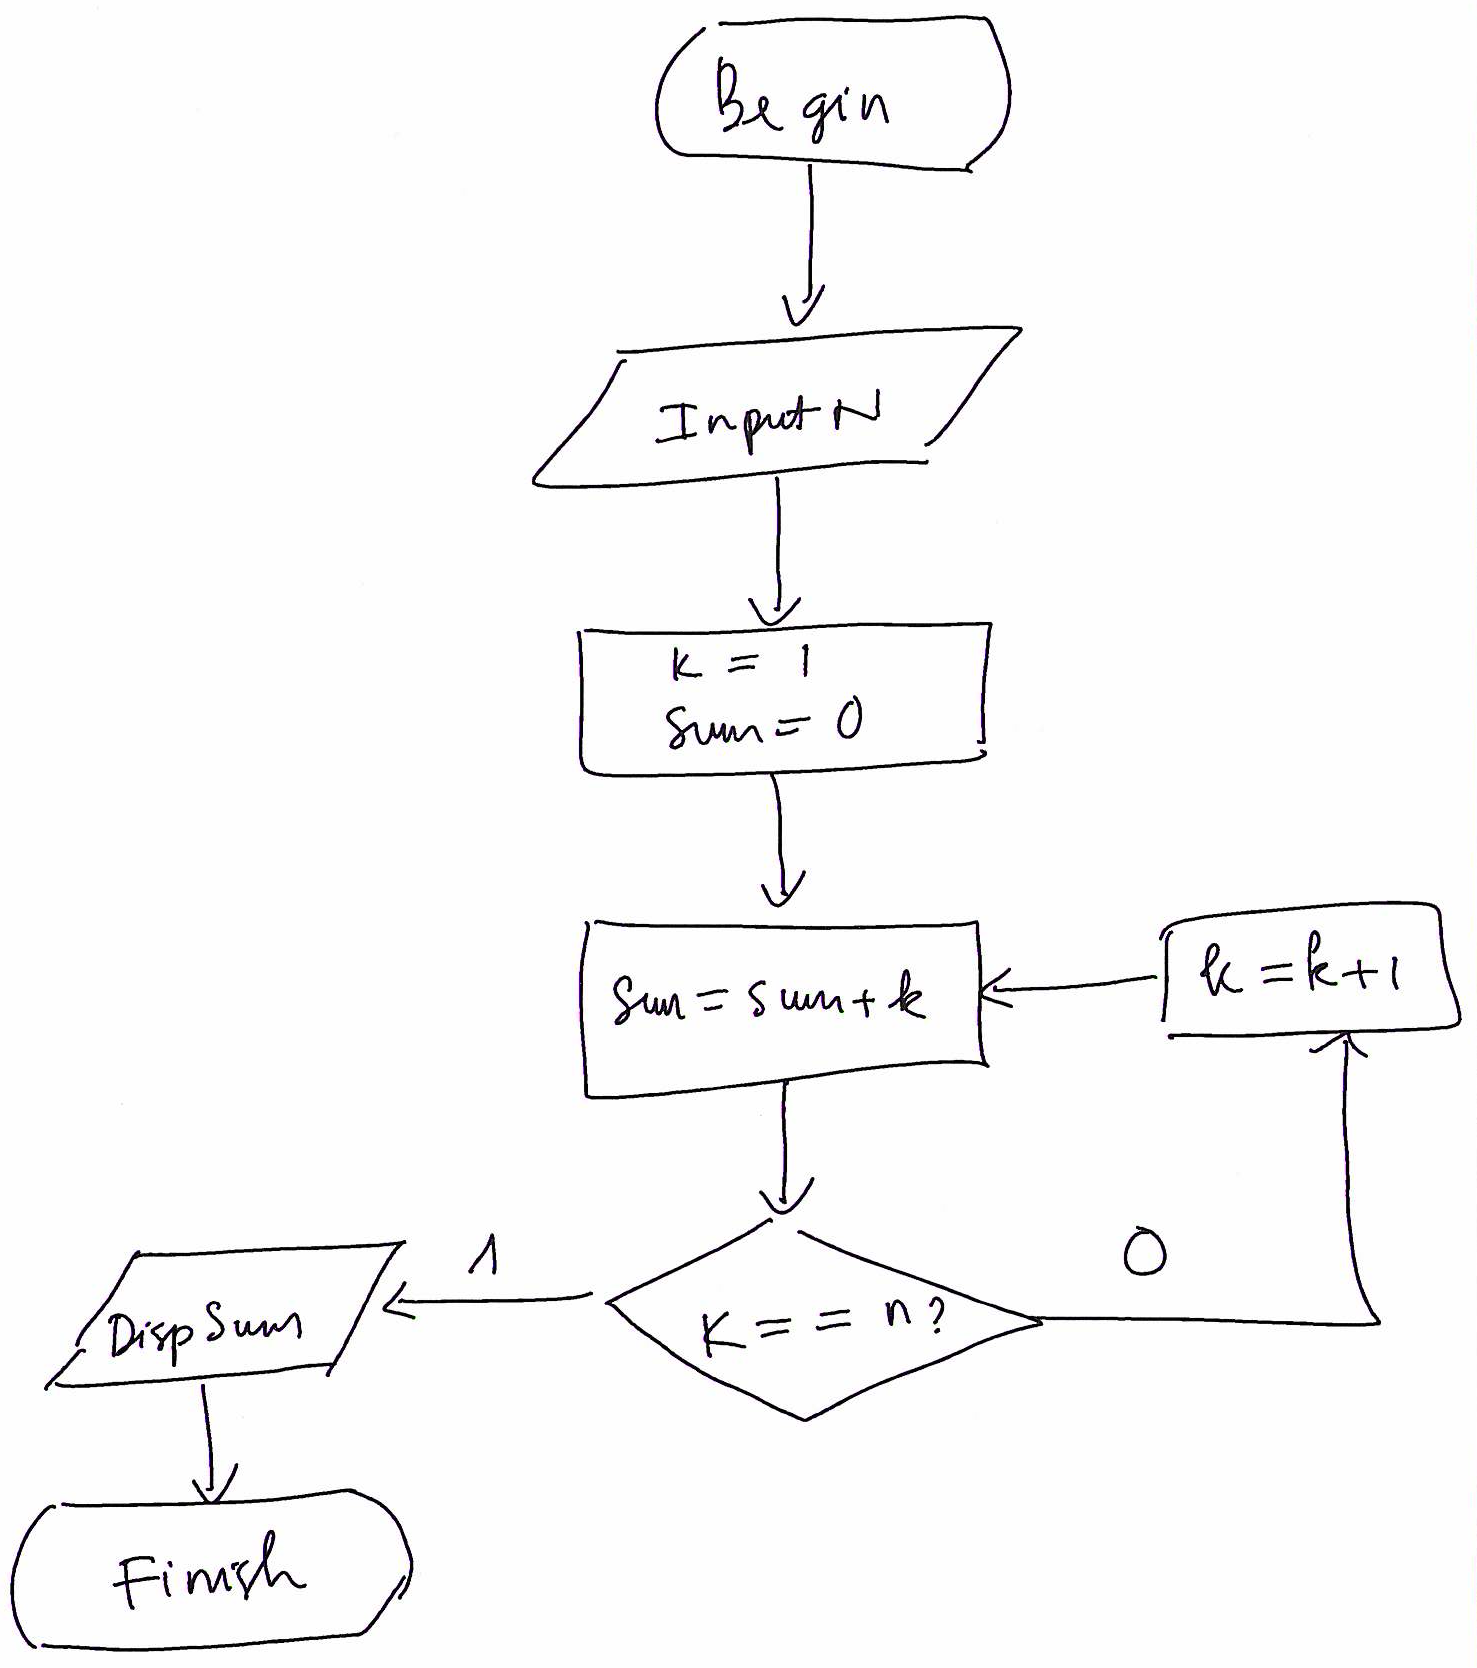 Begin
Input N
K = 1
Sum = 0
Sum = sum + k
k = k + 1
0
1
K = = n?
Disp Sum
Finish